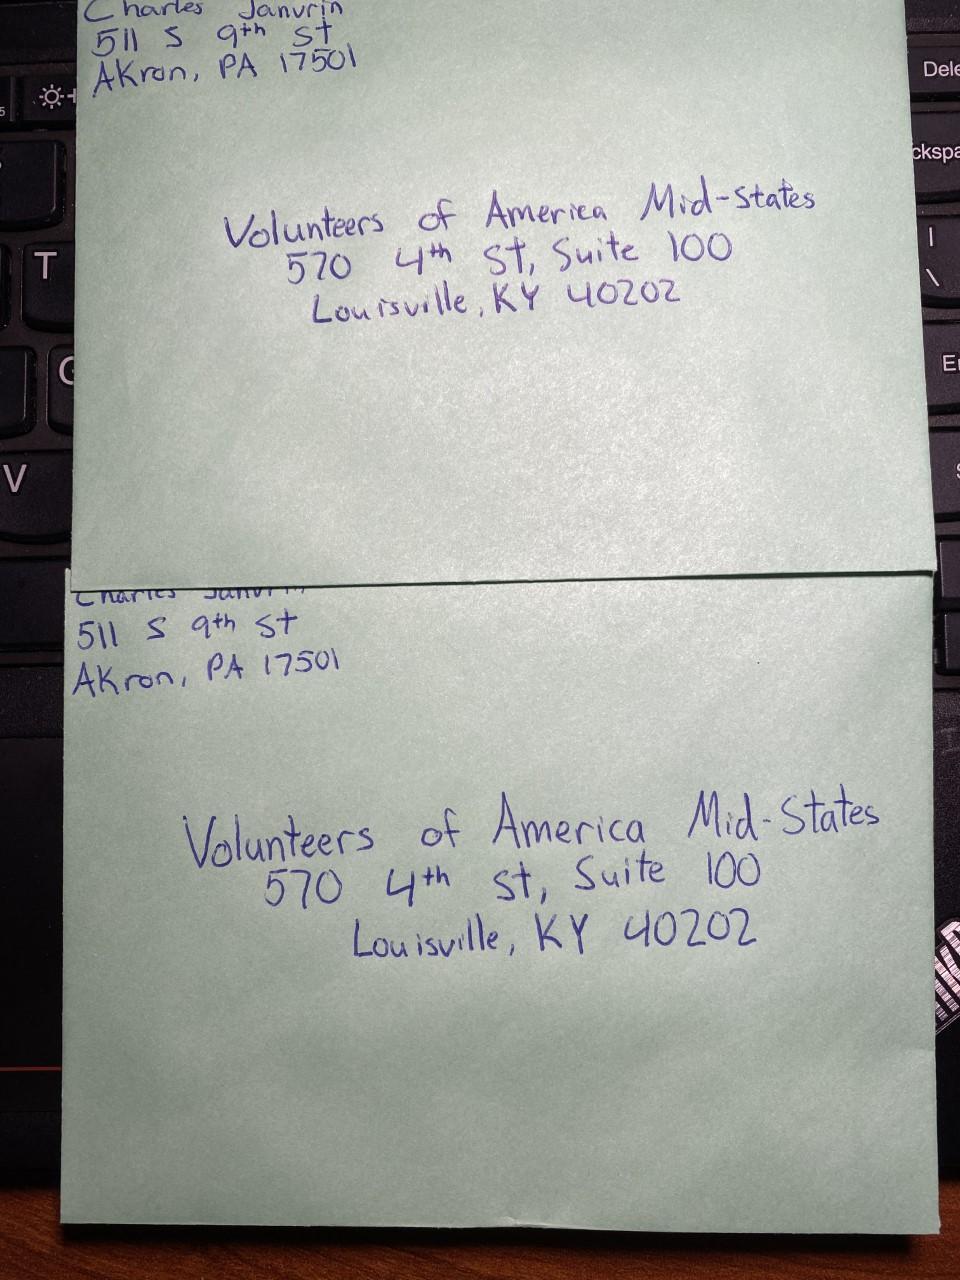 Charles Janvrin
511 S 9th St
AKron, PA 17501
Volunteers of America Mid-States
570 4th St, Suite 100
Louisville, KY 40202
Charles Janvrin
511 S 9th St
AKron, PA 17501
Volunteers of America Mid-States
570 4th St, Suite 100
Louisville, KY 40202
T
G
V
Dele
ckspa
|
\